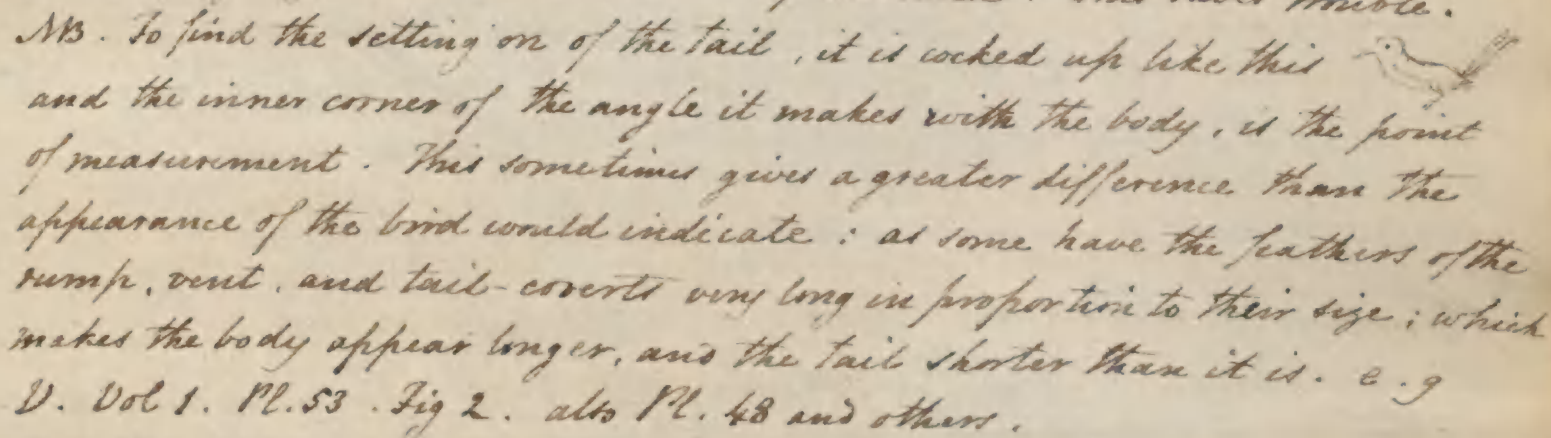 trouble.
NB. To find the setting on of the tail, it is cocked up like this
and the inner corner of the angle it makes with the body, is the point
of measurement. This sometimes gives a greater difference than the
appearance of the bird would indicate: as some have the feathers of the
rump, vent, and tail-coverts very long in proportion to their size; which
makes the body appear longer, and the tail shorter than it is. e.g
V. Vol 1. Pl. 53. Fig 2. also Pl. 48 and others.